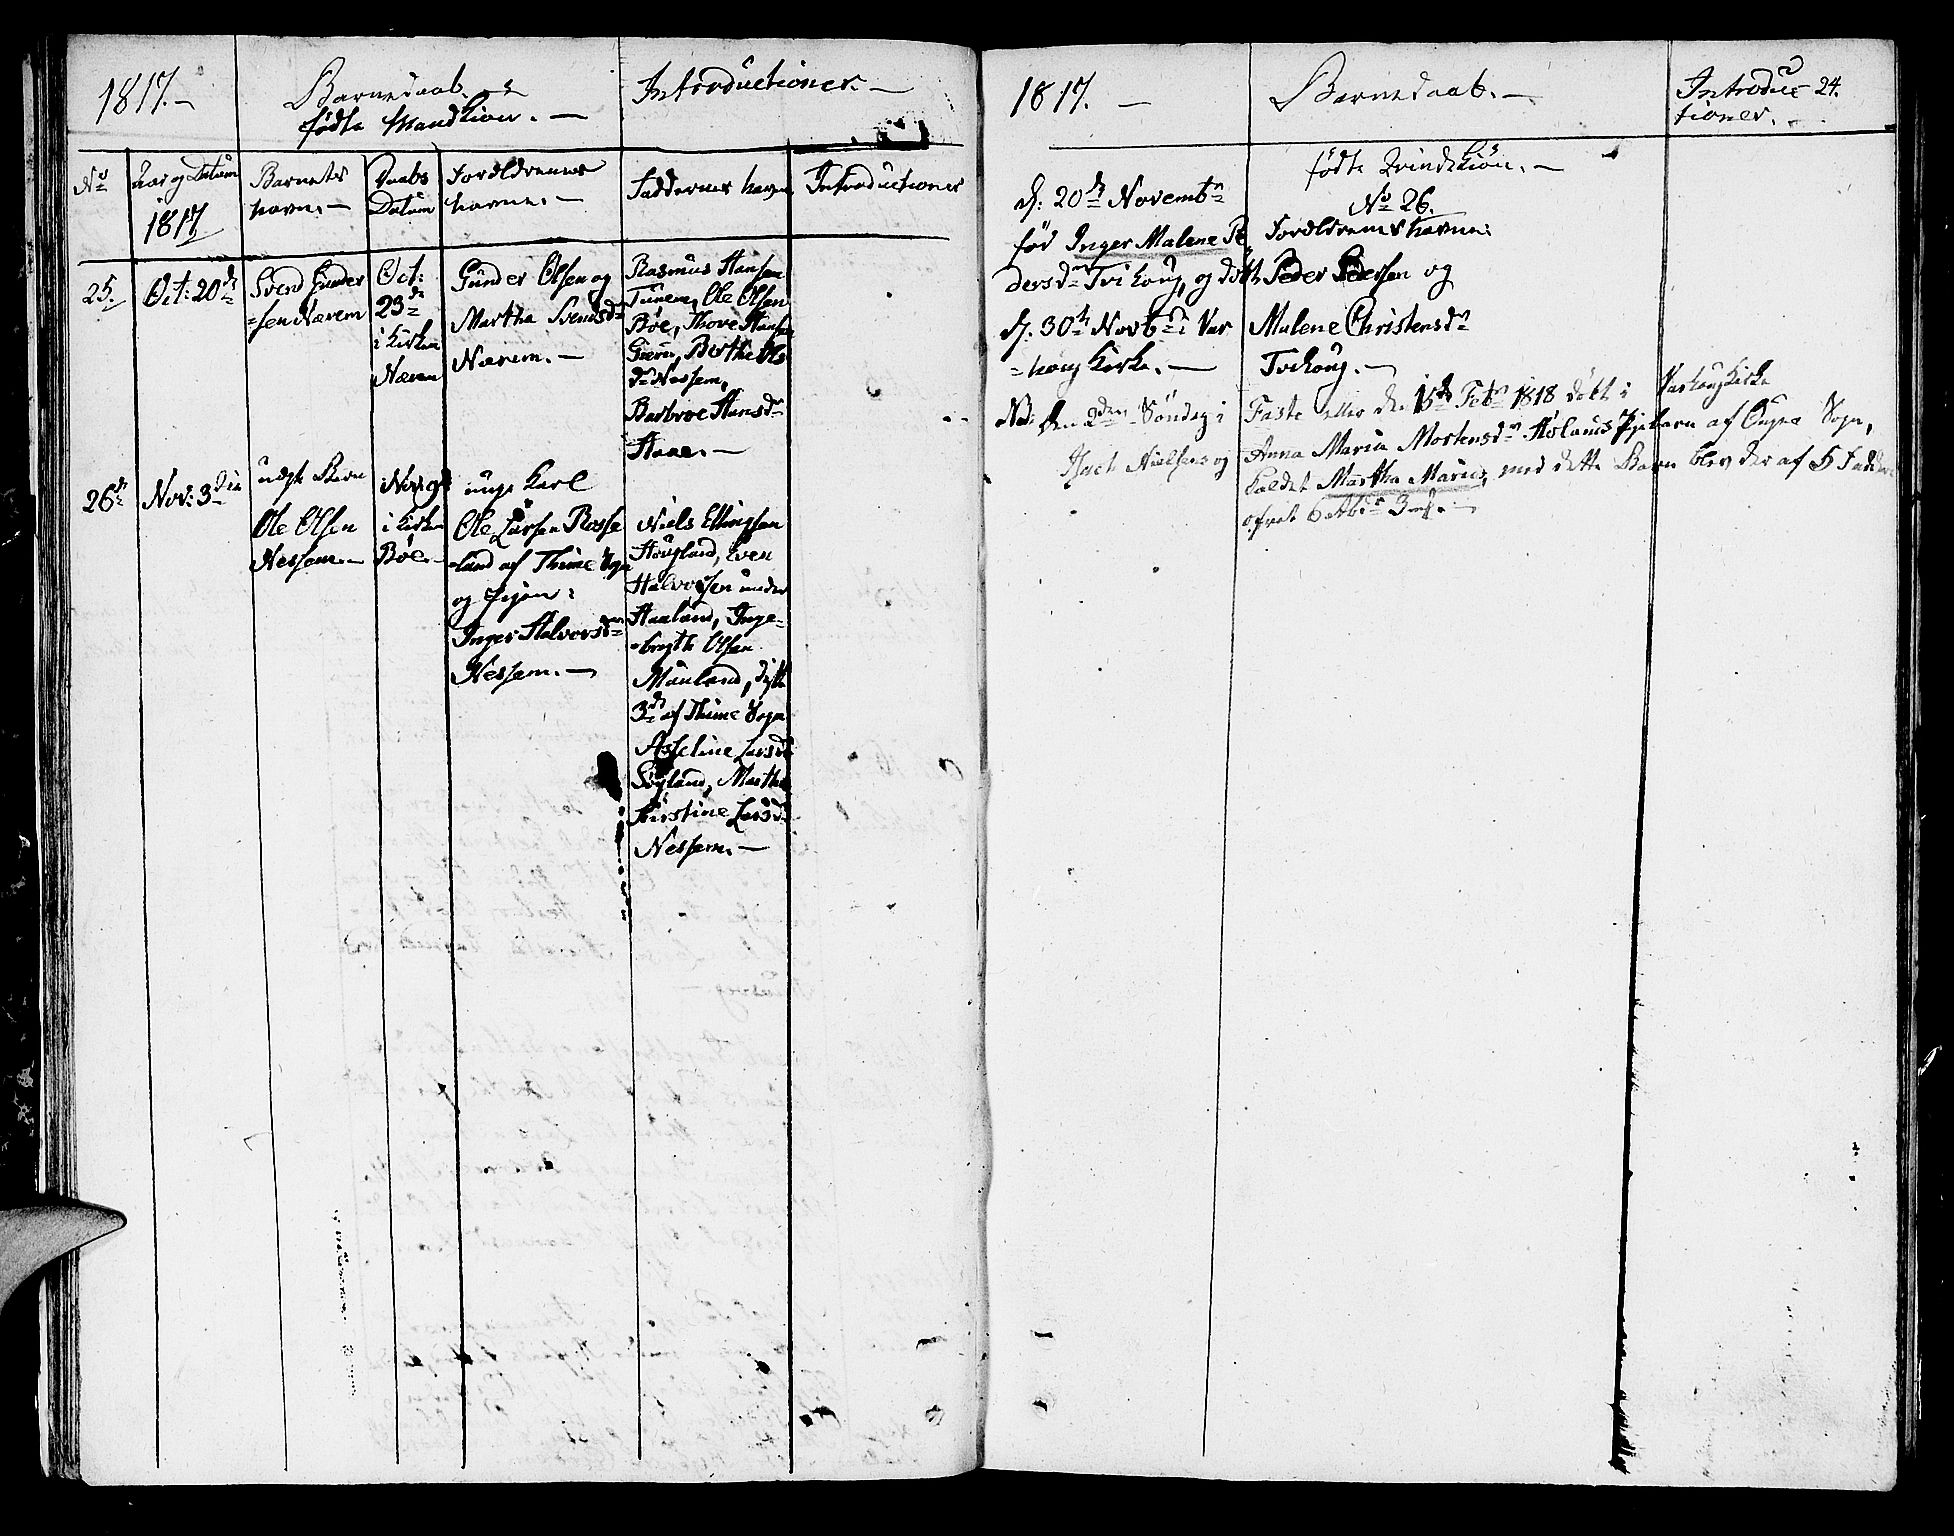 1817.—
Barnedaab.
fødte Mandkiøn.—
Introductioner.—
No
Aar og Datum
1817
Barnets
navn.—
Daabs
Datum
Forældrenes
navne.—
Faddernes navne
Introductioner
25.
Oct: 20de
Svend Gunder
=sen Nærem
Oct:
23de
i Kirken
Næren
Gunder Olsen og
Martha Svendsdr
Nærem.—
Rasmus Hansen
Tunem, Ole Olsen
Bøe, Thore Hansen
Grem, Berthe Ols
dr Nessem,
Barbroe Hansdr
Haae.—
26de
Nov: 3die
uægte Barn
Ole Olsen
Nessem.—
Nov 9de
i Kirken
Bøe.—
unge Karl
Ole Larsen Rosse
land af Thime Sogn
og Pigen:
Inger Halvorsdr
Nessem.—
Niels Ellingsen
Houland, Even
Halvorsen under
Haaland, Inge-
-bregth Olsen
Mauland, disse
3de af Thime Sogn
Asseline Larsdr
Søyland, Martha
Kirstine Larsdr
Nessem.—
1817.—
Barnedaab.—
Introduc- 24.
tioner.
fødte Qvindekiøn.—
No 26.
d: 20de Novembr
fød Inger Malene Pe
dersdr Tvihoug, og døbt
d. 30te Novbr i Var
=houg Kirke.—
Forældrenes navne:
Peder Pedersen og
Malene Christensdr
Tvihoug.—
NB: den 2den Søndag i Faste eller den 15de Febr 1818 døbt i Varhoug Kirke
Isach Nielsens og Anna Maria Mortensdr Hølands Pigebarn af Ougna Sogn,
kaldet Martha Maria, med dette Barn blev der af 5 Faddere
ofret 6